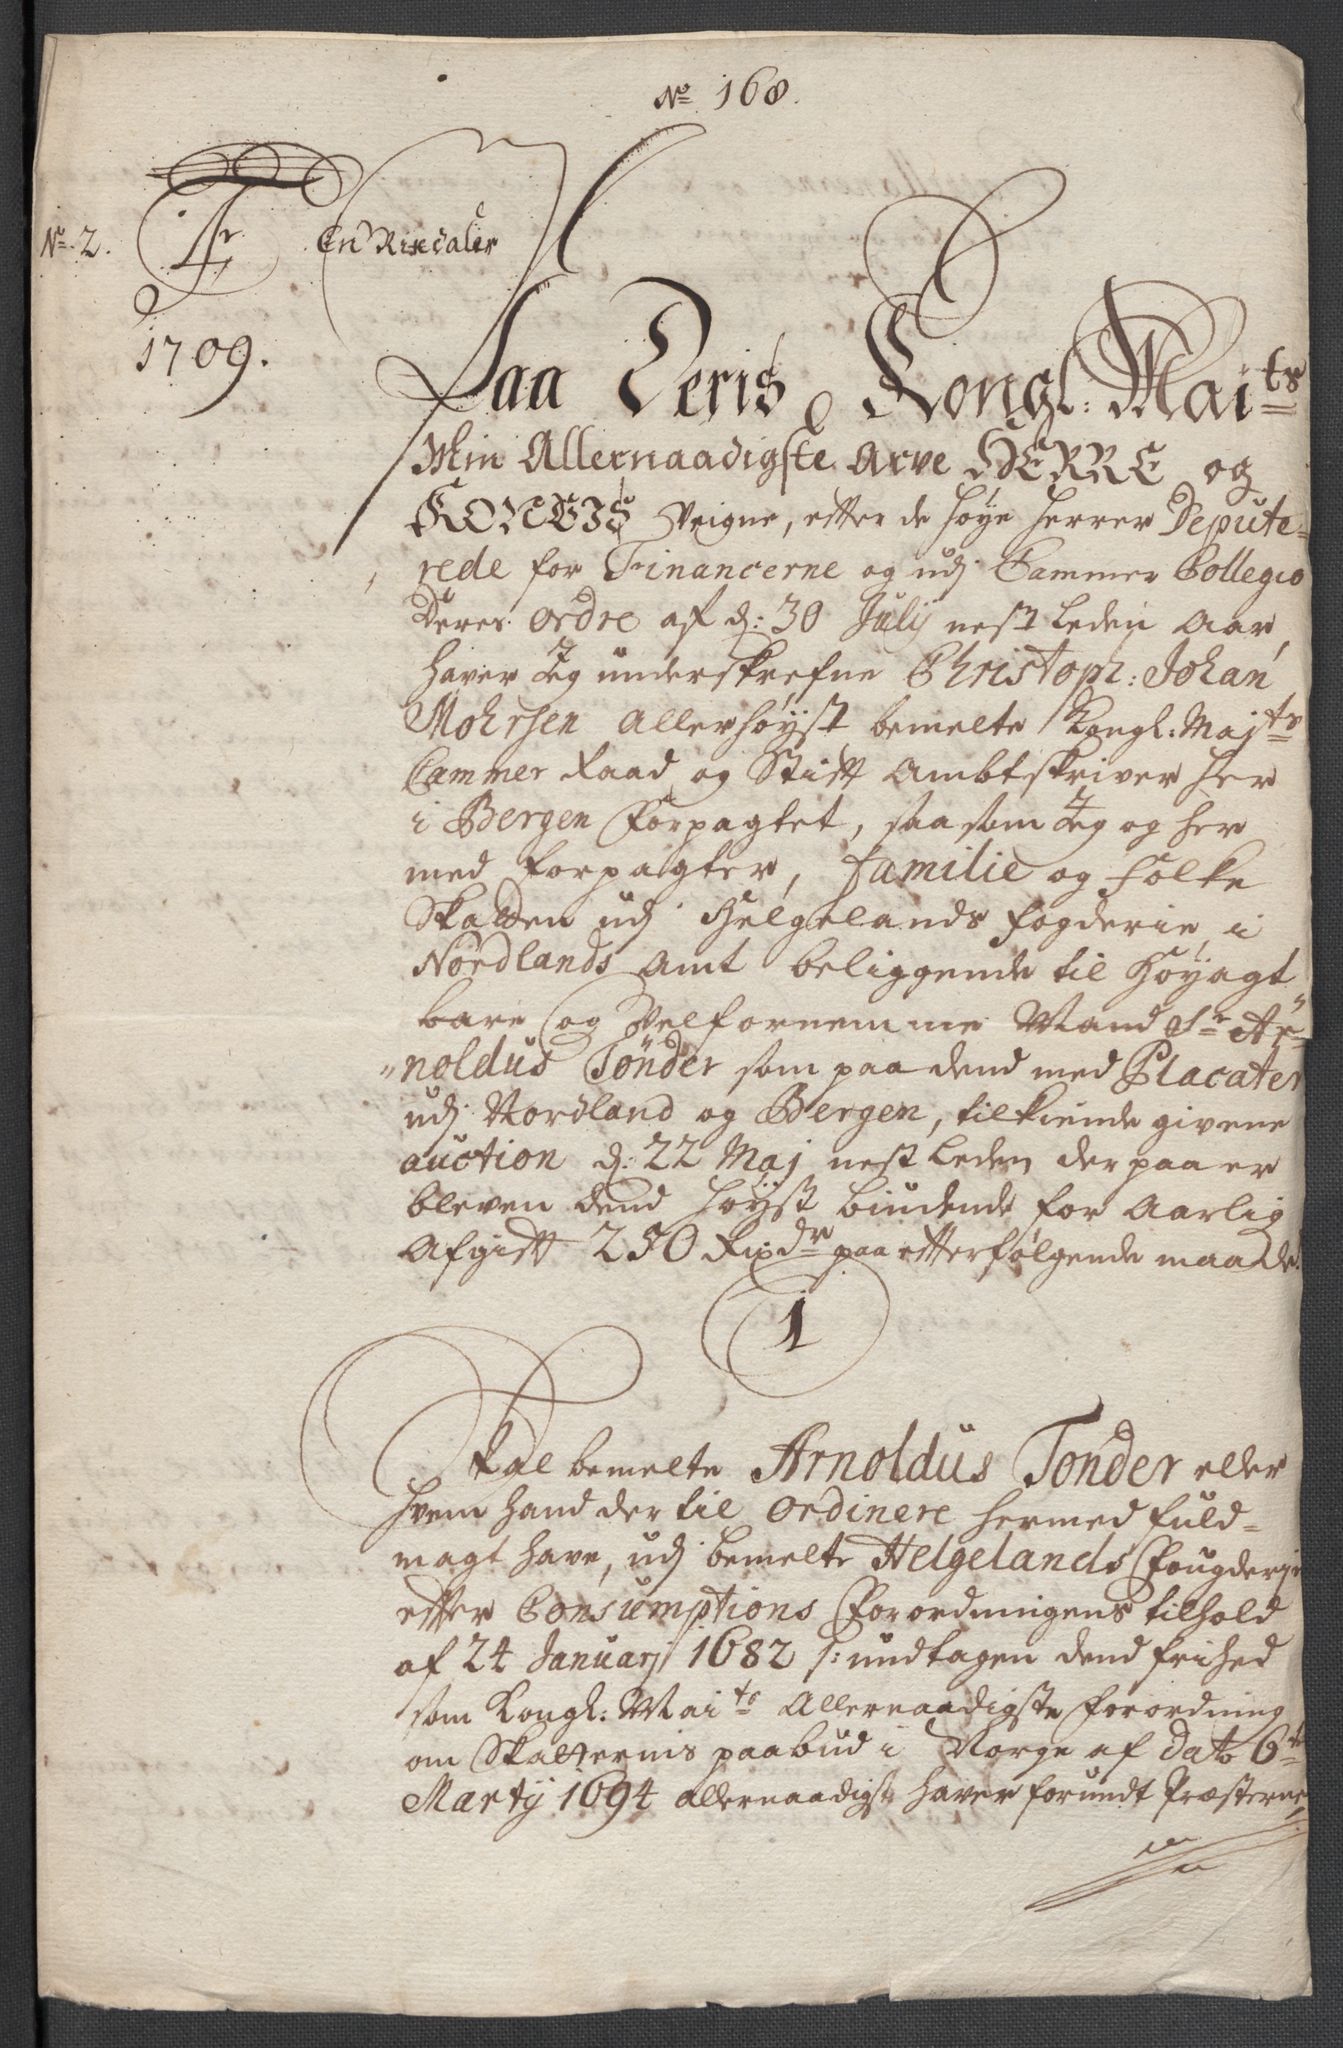 No 168.
No. 2.
4r
En Rixdaler
1709.
Paa Deris Kongl: Maits
Min Allernaadigste Arve HERRE og
KONGIS Veigne, efter de høye Herrer Depute-
rede for Financerne og udj Cammer Collegio
Deres Ordre af d: 30 Julij nestleden Aar,
haver Jeg underskrefne Christoph: Johan
Mohrsen Allerhøyst bemelte Kongl: Majts
Cammer Raad og Stifft Ambtskriver her
i Bergen Forpagtet, saa som Jeg og her
med forpagter, Familie og Folke
Skatten udj Helgelands fogderie, i
Nordlands Amt beliggende til Høyagt
bare og Velfornemme Mand Sr Ar-
noldus Tønder som paa dend med Placater
udj Nordland og Bergen, tilkiende givene
auction d: 22 Maj nestleden derpaa er
bleven dend høyst biudende for Aarlig
Afgift 250 Rixdr paa efterfølgende maade.
1
Skal bemelte Arnoldus Tønder eller
hvem hand der til Ordinere hermed fuld-
magt have, udj bemelte Helgelands Fougderje
efter Consumptions Forordningens tilhold
af 24 Januarj 1682 /: undtagen dend frihed
som Kongl: Maits Allernaadigste Forordning
om Skatternis paabud i Norge af dato 6te
Martij 1694 allernaadigst haver forundt Præsterne,